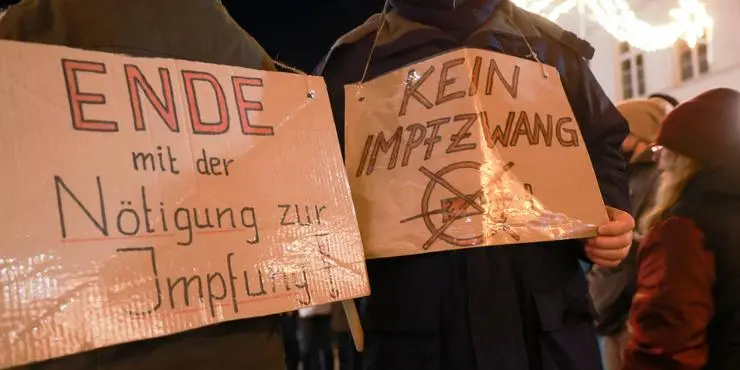 ENDE
mit der
Nötigung zur
Impfung!
KEIN
IMPFZWANG